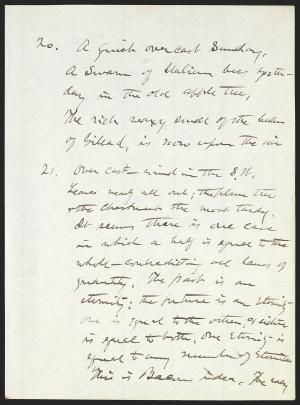 20. A quiet overcast Sunday,
A swarm of Italian bees yester-
day in the old apple tree,
The rich waxy smell of the balm
of Gilead, is now upon the air
21. Overcast - wind in the S.W.
Leaves nearly all out; the plum tree
& the chestnut the most tardy.
It seems there is one case
in which a half is equal to the
whole - contradicting all laws of
quantity. The past is an
eternity; the future is an eternity -
one is equal to the other, & either
is equal to both. One Eternity is
equal to any number of Eternities
This is Bacon's idea. The way